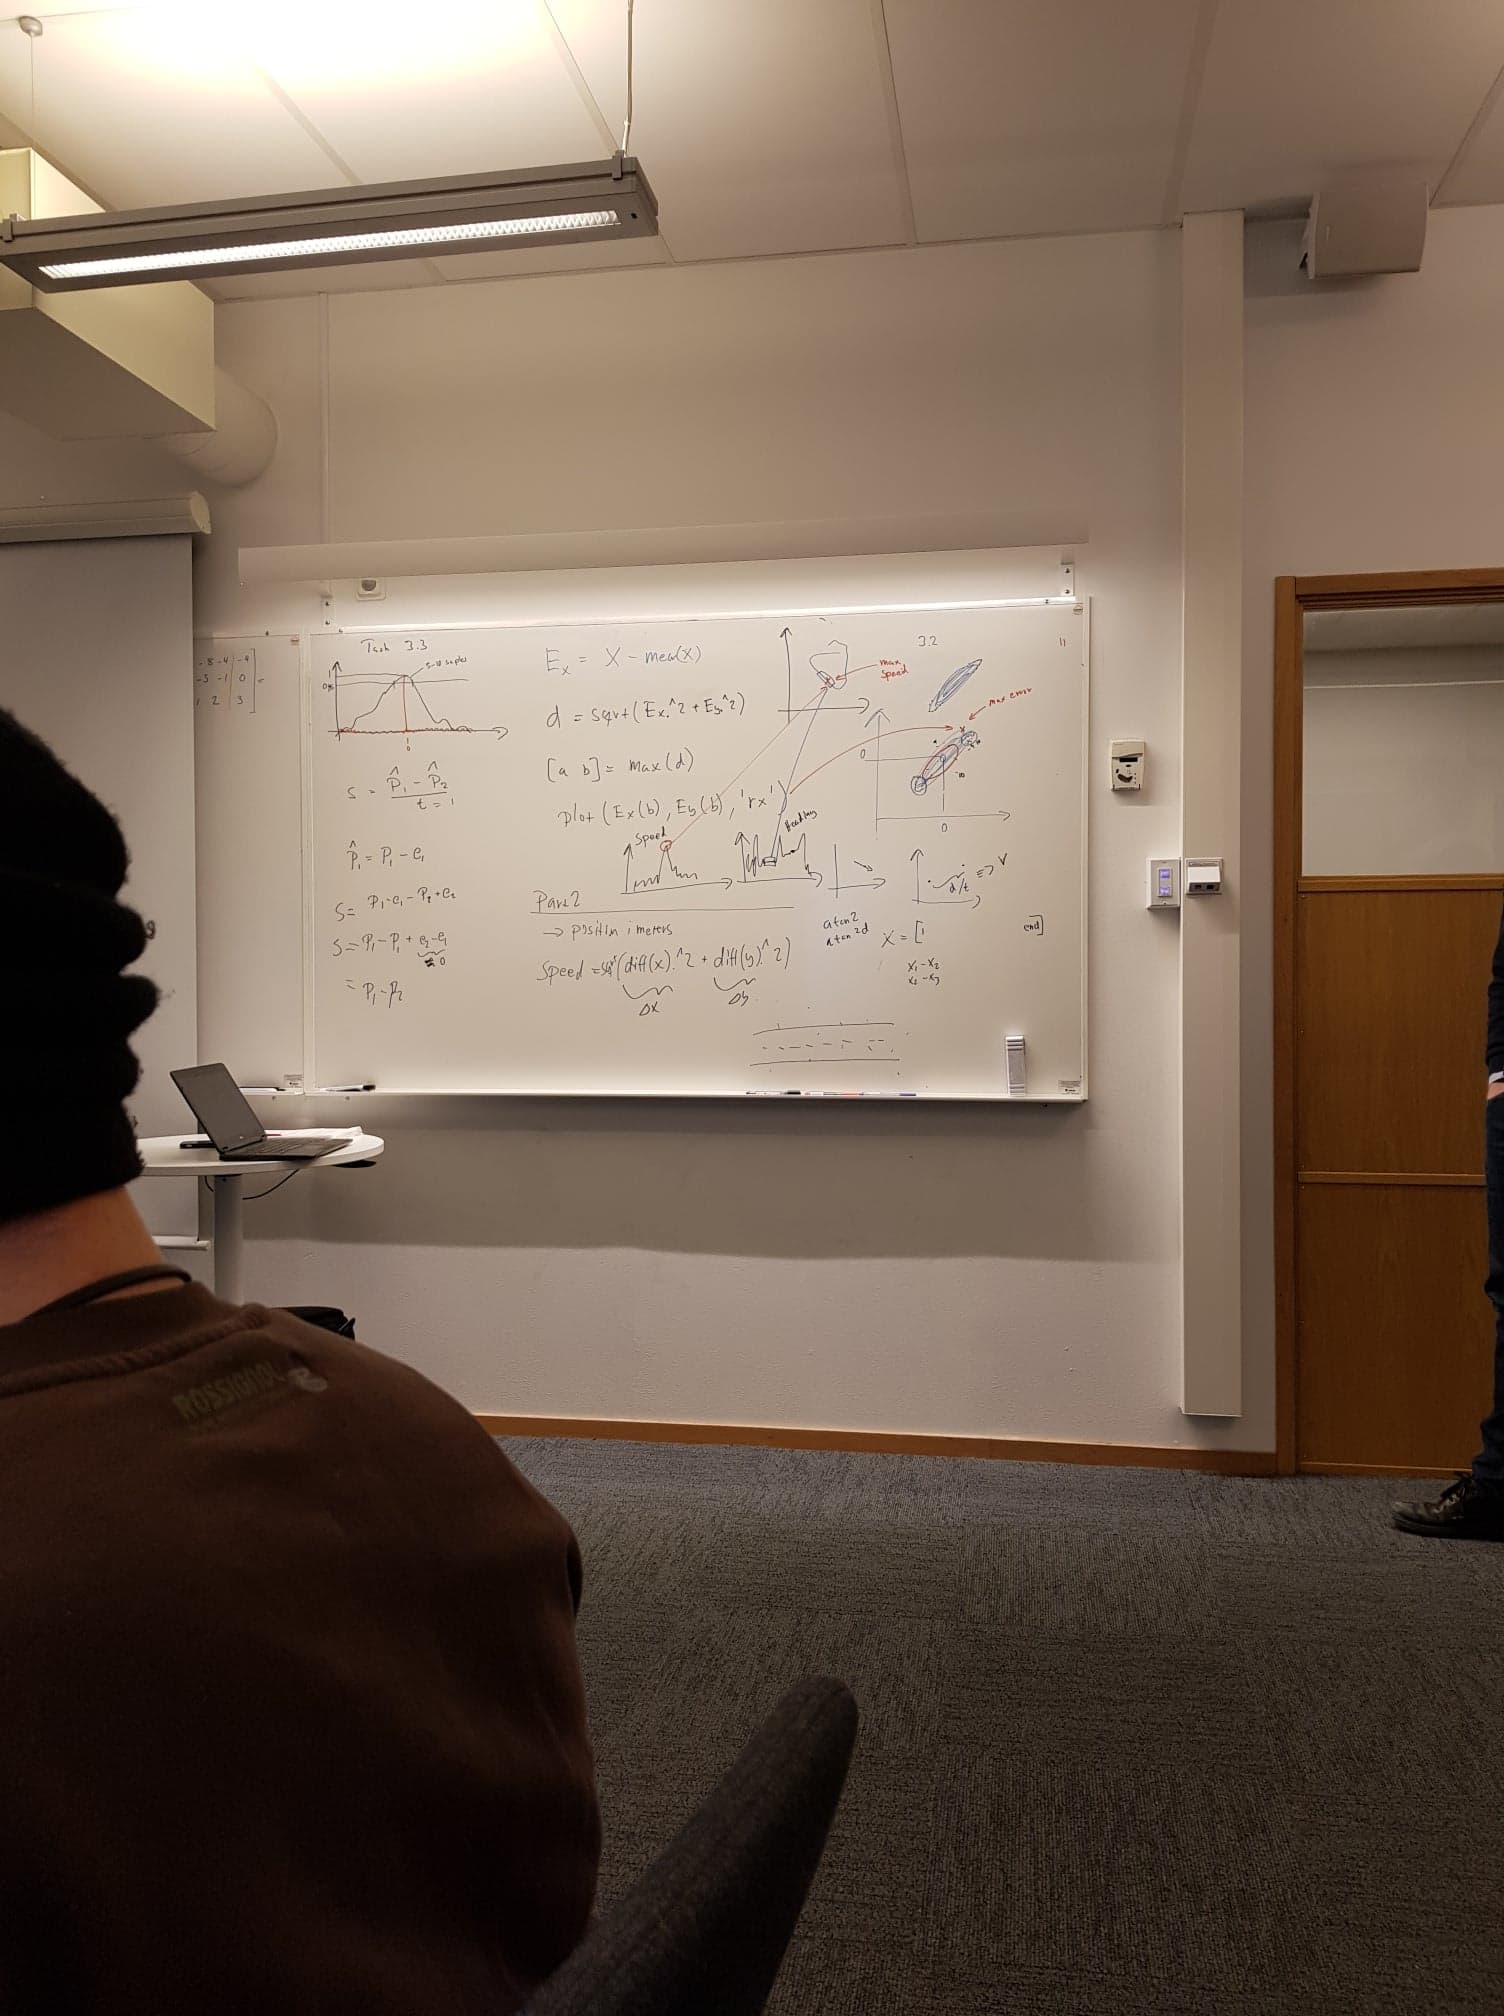 -8 -4 -4
-5 -1 0
1 2 3
=
Task 3.3
1
0
S = P̂₁ - P̂₂
t = 1
P̂₁ = P₁ - e₁
S = P₁ - e₁ - P₂ + e₂
S = P₁ - P₁ + e₂ - e₁
≈ 0
= P₁ - P₂
Eₓ = X - mean(x)
d = sqrt(Ex.^2 + Ey.^2)
[a b] = max(d)
plot (Ex(b), Ey(b), 'rx')
Speed
Heading
Part 2
→ position i meters
Speed = sqrt(diff(x).^2 + diff(y).^2)
Δx
Δy
max
speed
3.2
11
max error
0
0
d/t => v
atan2
atan2d
X = [1
end]
x₁-x₂
x₂-x₃
ROSSIGNOL